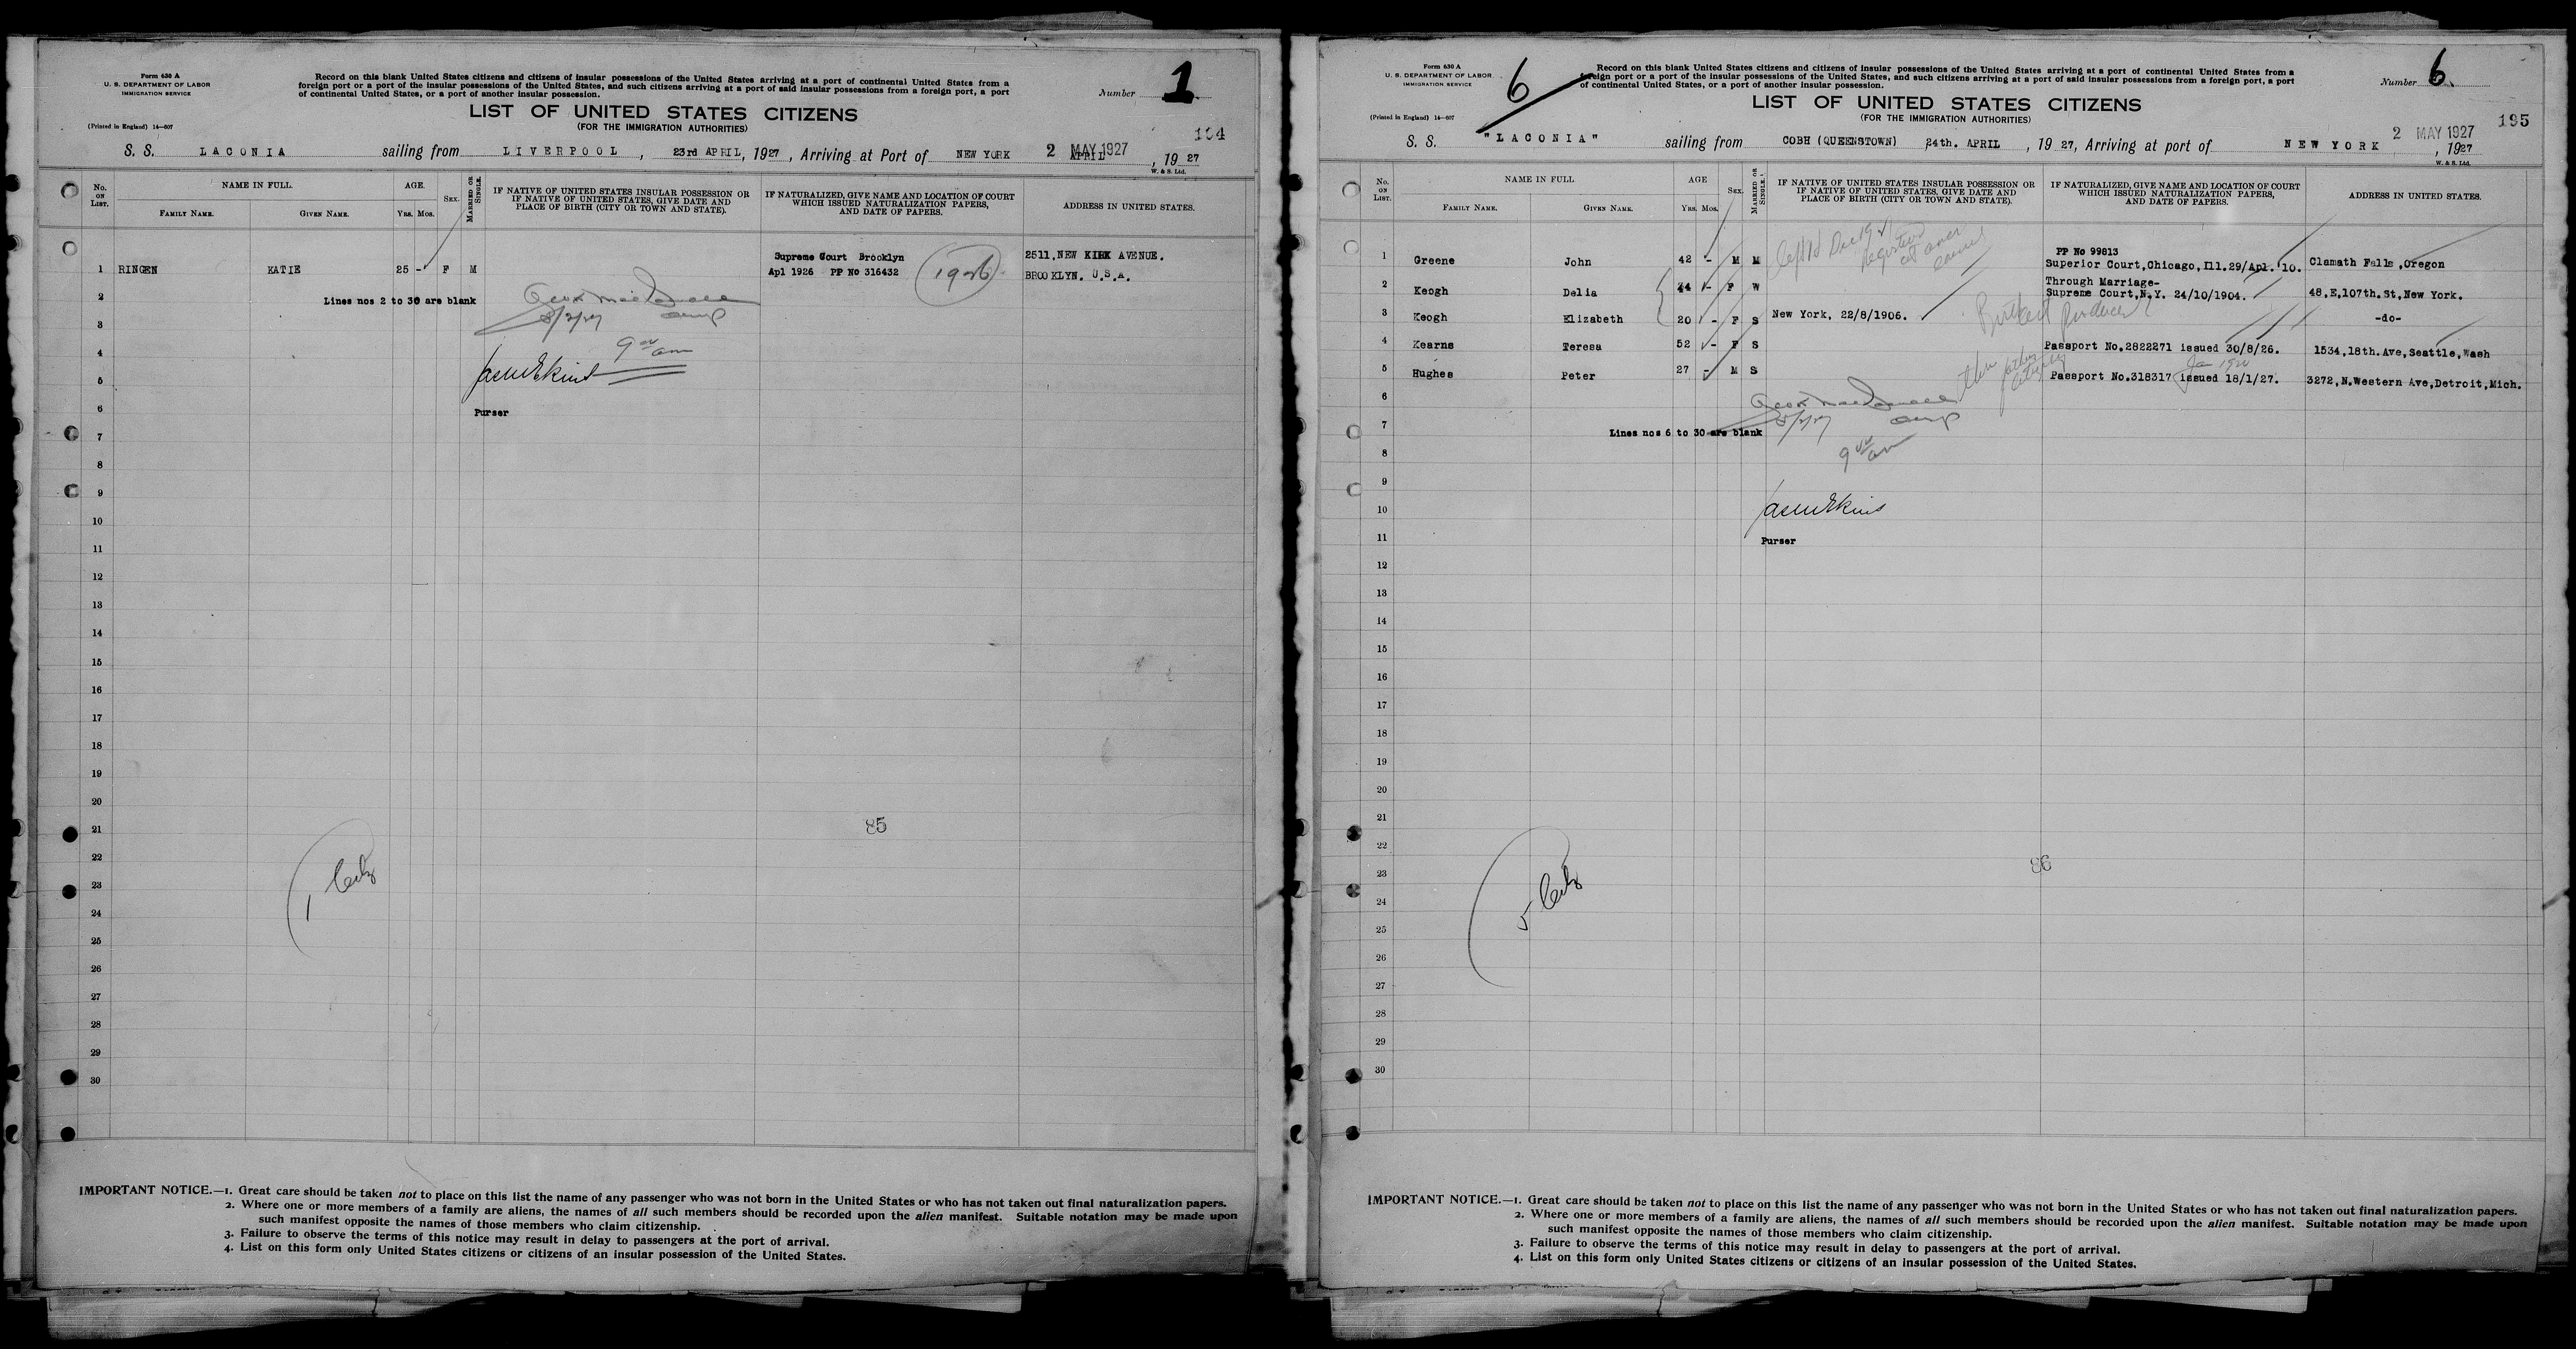 Form 630 A
U. S. DEPARTMENT OF LABOR
IMMIGRATION SERVICE
(Printed in England) 14—607
Record on this blank United States citizens and citizens of insular possessions of the United States arriving at a port of continental United States from a
foreign port or a port of the insular possessions of the United States, and such citizens arriving at a port of said insular possessions from a foreign port, a port
of continental United States, or a port of another insular possession.
Number 1
LIST OF UNITED STATES CITIZENS
(FOR THE IMMIGRATION AUTHORITIES)
104
S. S. LACONIA sailing from LIVERPOOL, 23rd APRIL, 1927, Arriving at Port of NEW YORK 2 MAY 1927 APRIL, 1927
W. & S. Ltd.
No. ON LIST.
NAME IN FULL.
FAMILY NAME.
GIVEN NAME.
AGE.
YRS. MOS.
SEX.
MARRIED OR SINGLE.
IF NATIVE OF UNITED STATES INSULAR POSSESSION OR
IF NATIVE OF UNITED STATES, GIVE DATE AND
PLACE OF BIRTH (CITY OR TOWN AND STATE).
IF NATURALIZED, GIVE NAME AND LOCATION OF COURT
WHICH ISSUED NATURALIZATION PAPERS,
AND DATE OF PAPERS.
ADDRESS IN UNITED STATES.
Supreme Court Brooklyn
2511, NEW KIRK AVENUE.
1 RINGEN KATIE 25 - F M Apl 1926 PP No 316432 1926 BROOKLYN. U.S.A.
2 Lines nos 2 to 30 are blank
3
4 9 am
5
6 Purser
7
8
9
10
11
12
13
14
15
16
17
18
19
20
21 85
22
23
24 1
25
26
27
28
29
30
IMPORTANT NOTICE.—1. Great care should be taken not to place on this list the name of any passenger who was not born in the United States or who has not taken out final naturalization papers.
2. Where one or more members of a family are aliens, the names of all such members should be recorded upon the alien manifest. Suitable notation may be made upon
such manifest opposite the names of those members who claim citizenship.
3. Failure to observe the terms of this notice may result in delay to passengers at the port of arrival.
4. List on this form only United States citizens or citizens of an insular possession of the United States.
Form 630 A
U. S. DEPARTMENT OF LABOR
IMMIGRATION SERVICE
(Printed in England) 14—607
6
Record on this blank United States citizens and citizens of insular possessions of the United States arriving at a port of continental United States from a
foreign port or a port of the insular possessions of the United States, and such citizens arriving at a port of said insular possessions from a foreign port, a port
of continental United States, or a port of another insular possession.
Number 6
LIST OF UNITED STATES CITIZENS
(FOR THE IMMIGRATION AUTHORITIES)
195
S. S. "LACONIA" sailing from COBH (QUEENSTOWN) 24th. APRIL, 1927, Arriving at port of NEW YORK 2 MAY 1927, 1927
W. & S. Ltd.
No. ON LIST.
NAME IN FULL
FAMILY NAME.
GIVEN NAME.
AGE
YRS. MOS.
SEX.
MARRIED OR SINGLE.
IF NATIVE OF UNITED STATES INSULAR POSSESSION OR
IF NATIVE OF UNITED STATES, GIVE DATE AND
PLACE OF BIRTH (CITY OR TOWN AND STATE).
IF NATURALIZED, GIVE NAME AND LOCATION OF COURT
WHICH ISSUED NATURALIZATION PAPERS,
AND DATE OF PAPERS.
ADDRESS IN UNITED STATES.
PP No 99813
1 Greene John 42 - M M Superior Court, Chicago, Ill. 29/Apl. '10. Clamath Falls, Oregon
Through Marriage-
2 Keogh Delia 44 - F W Supreme Court, N.Y. 24/10/1904. 48, E, 107th. St, New York.
3 Keogh Elizabeth 20 - F S New York, 22/8/1906. -do-
4 Kearns Teresa 52 - F S Passport No. 2822271 issued 30/8/26. 1534, 18th. Ave, Seattle, Wash
5 Hughes Peter 27 - M S Passport No. 318317 issued 18/1/27. 3272, N. Western Ave, Detroit, Mich.
6
7 Lines nos 6 to 30 are blank
8 9 am
9
10
11 Purser
12
13
14
15
16
17
18
19
20
21
22
23 86
24 5
25
26
27
28
29
30
IMPORTANT NOTICE.—1. Great care should be taken not to place on this list the name of any passenger who was not born in the United States or who has not taken out final naturalization papers.
2. Where one or more members of a family are aliens, the names of all such members should be recorded upon the alien manifest. Suitable notation may be made upon
such manifest opposite the names of those members who claim citizenship.
3. Failure to observe the terms of this notice may result in delay to passengers at the port of arrival.
4. List on this form only United States citizens or citizens of an insular possession of the United States.